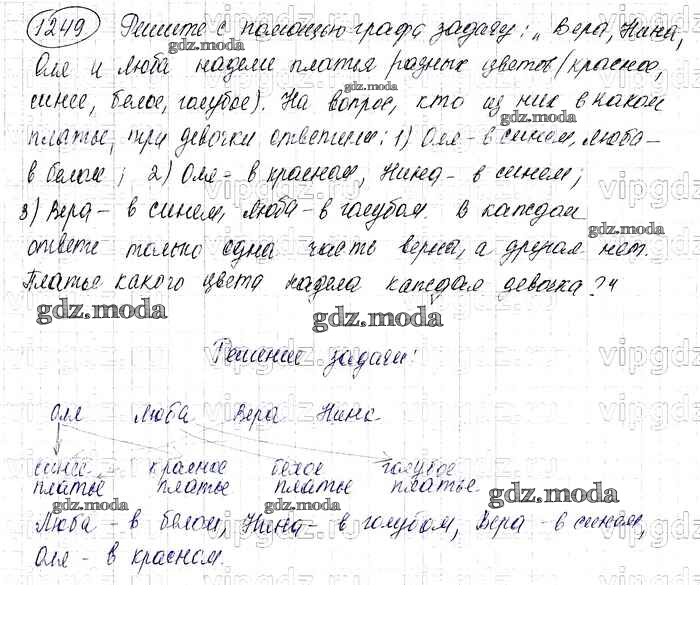 1249 Решите с помощью графа задачу: „Вера, Нина,
Оля и Люба надели платья разных цветов (красное,
синее, белое, голубое). На вопрос, кто из них в каком
платье, три девочки ответили: 1) Оля - в синем, Люба -
в белом; 2) Оля - в красном, Нина - в синем;
3) Вера - в синем, Люба - в голубом. В каждом
ответе только одна часть верна, а другая нет.
Платье какого цвета надела каждая девочка?"
Решение задачи:
Оля Люба Вера Нина
синее красное белое голубое
платье платье платье платье
Люба - в белом, Нина - в голубом, Вера - в синем,
Оля - в красном.
gdz.moda
gdz.moda
gdz.moda
gdz.moda
gdz.moda
gdz.moda
gdz.moda
gdz.moda
gdz.moda
gdz.moda
gdz.moda